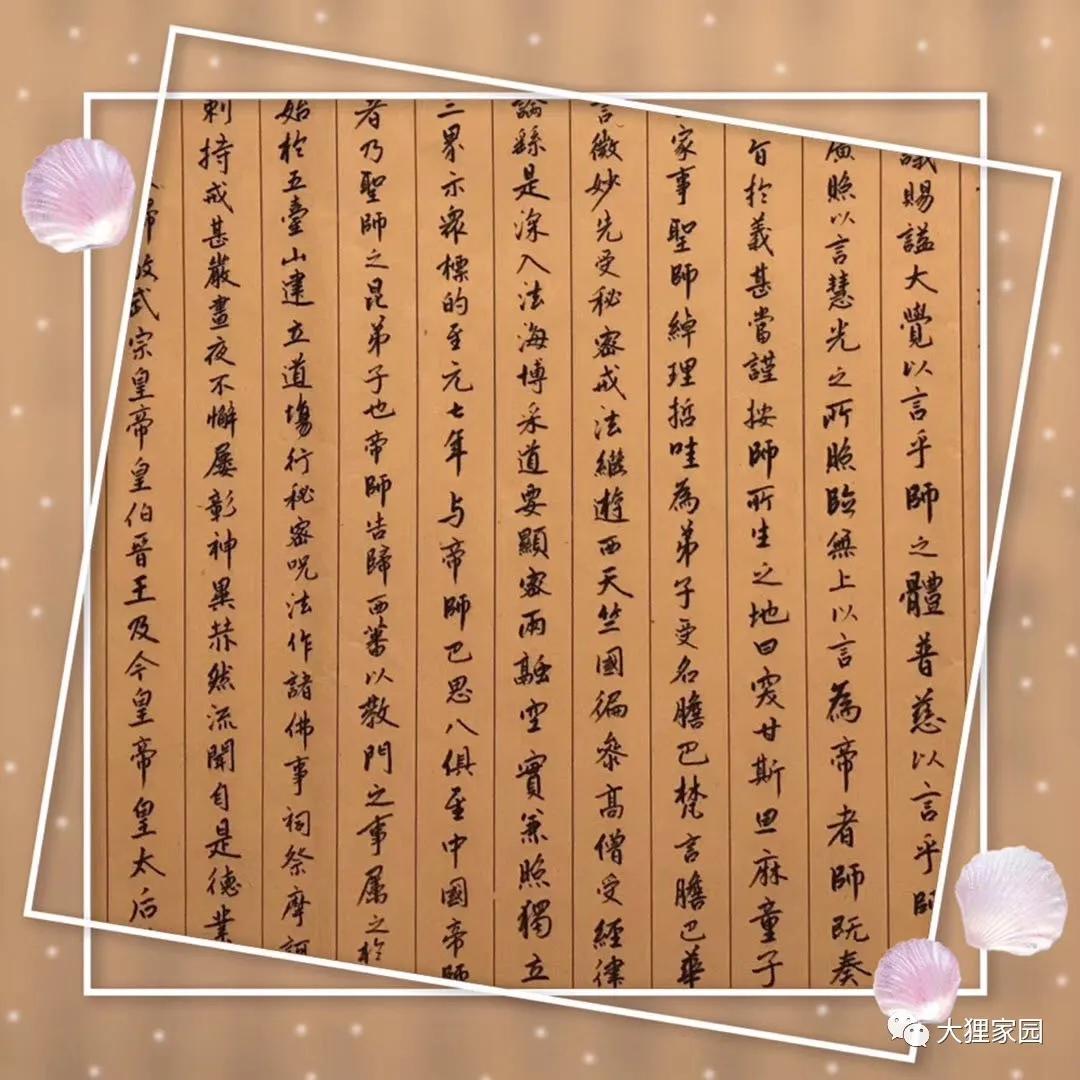 議賜謚大覺以言乎師之體普慈以言乎師
廣照以言慧光之所照臨無上以言為帝者師既奏
旨於義甚當謹按師所生之地曰突甘斯旦麻童子
家事聖師綽理哲哇為弟子受名膽巴梵言膽巴華
言微妙先受秘密戒法繼遊西天竺國徧參高僧受經律
論繇是深入法海博采道要顯密兩融空實兼照獨立
三界示眾標的至元七年与帝師巴思八俱至中國帝師
者乃聖師之昆弟子也帝師告歸西蕃以教門之事屬之於
始於五臺山建立道場行秘密呪法作諸佛事祠祭摩訶
剌持戒甚嚴晝夜不懈屢彰神異赫然流聞自是德業
帝故武宗皇帝皇伯晋王及今皇帝皇太后
大狸家园